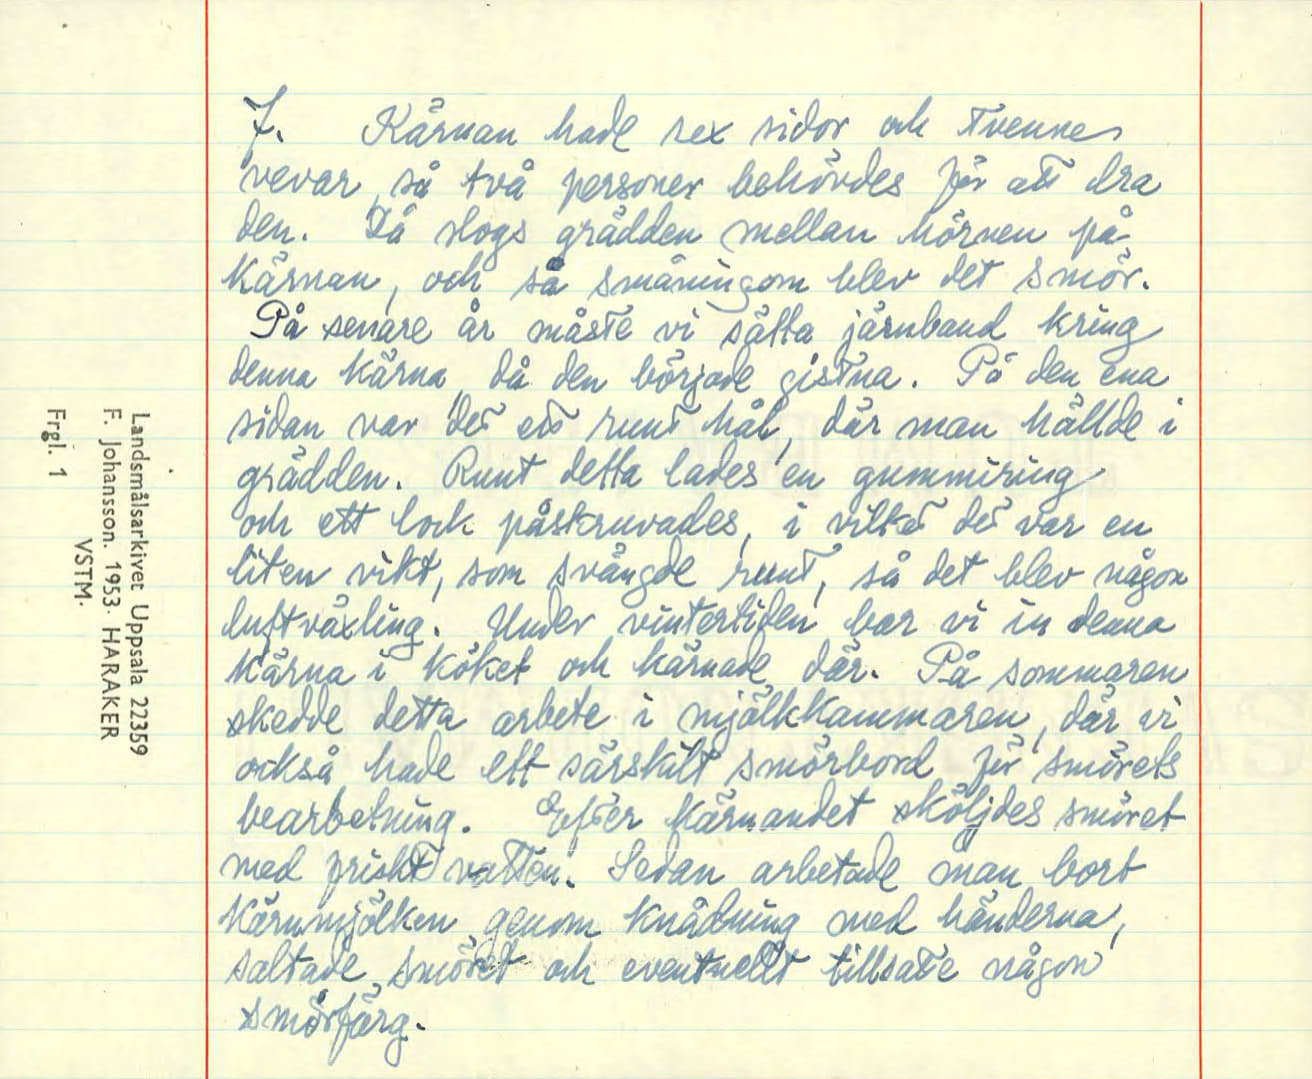 7. Kärnan hade sex sidor och tvenne
vevar, så två personer behövdes för att dra
den. Då slogs grädden mellan hörnen på
kärnan, och så småningom blev det smör.
På senare år måste vi sätta järnband kring
denna kärna, då den började gistna. På den ena
sidan var det ett runt hål, där man hällde i
grädden. Runt detta lades en gummiring
och ett lock påskruvades, i vilket det var en
liten vikt, som svängde runt, så det blev någon
luftväxling. Under vintertiden bar vi in denna
kärna i köket och kärnade där. På sommaren
skedde detta arbete i mjölkkammaren, där vi
också hade ett särskilt smörbord för smörets
bearbetning. Efter kärnandet sköljdes smöret
med friskt vatten. Sedan arbetade man bort
kärnmjölken genom knådning med händerna,
saltade smöret och eventuellt tillsatte någon
smörfärg.
Landsmålsarkivet Uppsala 22359
F. Johansson. 1953. HARAKER
VSTM.
Frgl. 1